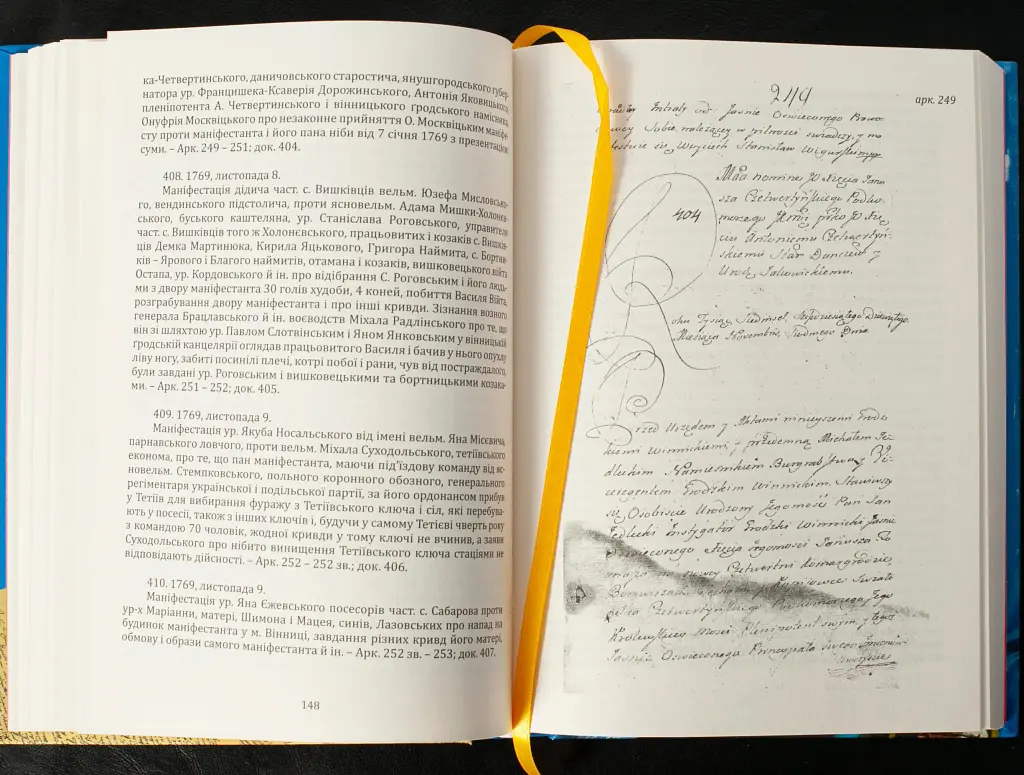 ка-Четвертинського, даничовського старостича, янушгородського губер-
натора ур. Францишека-Ксаверія Дорожинського, Антонія Яковицького,
пленіпотента А. Четвертинського і вінницького гродського намісника
Онуфрія Москвіцького про незаконне прийняття О. Москвіцьким маніфе-
сту проти маніфестанта і його пана ніби від 7 січня 1769 з презентацією
суми. – Арк. 249 – 251; док. 404.
408. 1769, листопада 8.
Маніфестація дідича част. с. Вишківців вельм. Юзефа Мисловсько-
го, вендинського підстолича, проти ясновельм. Адама Мишки-Холонєв-
ського, буського каштеляна, ур. Станіслава Роговського, управителя
част. с. Вишківців того ж Холонєвського, працьовитих і козаків с. Вишків-
ців Демка Мартинюка, Кирила Яцькового, Григора Наймита, с. Бортни-
ків – Ярового і Благого наймитів, отамана і козаків, вишковецького війта
Остапа, ур. Кордовського й ін. про відібрання С. Роговським і його людь-
ми з двору маніфестанта 30 голів худоби, 4 коней, побиття Василя Війта,
розграбування двору маніфестанта і про інші кривди. Зізнання возного
генерала Брацлавського й ін. воєводств Міхала Радлінського про те, що
він зі шляхтою ур. Павлом Слотвінським і Яном Янковським у вінницькій
ґродській канцелярії оглядав працьовитого Василя і бачив у нього опухлу
ліву ногу, забиті посинілі плечі, котрі побої і рани, чув від постраждалого,
були завдані ур. Роговським і вишковецькими та бортницькими козака-
ми. – Арк. 251 – 252; док. 405.
409. 1769, листопада 9.
Маніфестація ур. Якуба Носальського від імені вельм. Яна Місєвича,
парнавського ловчого, проти вельм. Міхала Суходольського, тетіївського
економа, про те, що пан маніфестанта, маючи під’їздову команду від яс-
новельм. Стемпковського, польного коронного обозного, генерального
регіментаря української і подільської партії, за його ордонансом прибув
у Тетіїв для вибирання фуражу з Тетіївського ключа і сіл, які перебува-
ють у посесії, також з інших ключів і, будучи у самому Тетієві чверть року
з командою 70 чоловік, жодної кривди у тому ключі не вчинив, а заява
Суходольського про нібито винищення Тетіївського ключа стаціями не
відповідають дійсності. – Арк. 252 – 252 зв.; док. 406.
410. 1769, листопада 9.
Маніфестація ур. Яна Єжевського посесорів част. с. Сабарова проти
ур-х Маріанни, матері, Шимона і Мацея, синів, Лазовських про напад на
будинок маніфестанта у м. Вінниці, завдання різних кривд його матері,
обмову і образи самого маніфестанта й ін. – Арк. 252 зв. – 253; док. 407.
148
249
арк. 249
Intraty od Jasnie Oswieconego
Sobie należący w pilności swiadczy, y na
się Woyciech Stanisław
nomine JO Xięcia Janu
sza Czetwertyńskiego Podko
morzego
ciu Antoniemu Czetwertyń-
skiemu Star
404
Roku Tysiąc Siedmset Sześćdziesiątego Dziewiątego,
Miesiąca Novembris, Siodmego Dnia
Przed Urzędem y Aktami ninieyszemi Grodz
kiemi Winnickiemi, y przedemną Michałem Je
dleckim Namiesnikiem Burgrabstwa y
Grodzkim Winnickim, Stanąwszy
się Osobiscie Urodzony Jegomość Pan Jan
Jedlecki Instygator Grodzki Winnicki Jasnie
Oswieconego Xięcia Jegomości Janusza
Czetwertyńskiego Podkomorzego Jego
Krolewskiey Mosci Plenipotent
Jasnie Oswieconego Pryncypała Swego